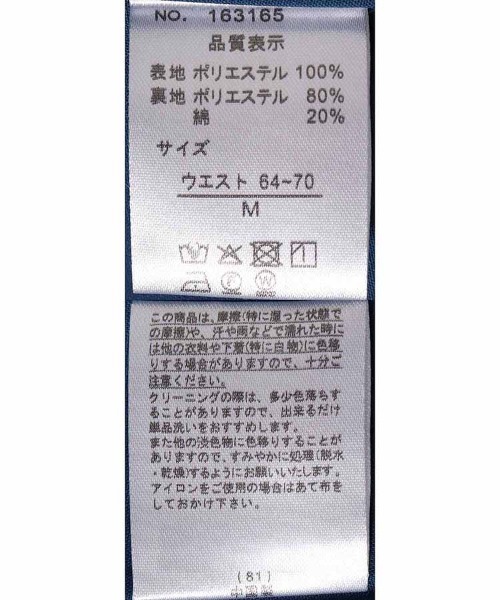 NO. 163165
品質表示
表地 ポリエステル 100%
裏地 ポリエステル 80%
綿 20%
サイズ
ウエスト 64~70
M
この商品は、摩擦(特に湿った状態で
の摩擦)や、汗や雨などで濡れた時に
は他の衣料や下着(特に白物)に色移
りする場合がありますので、十分ご
注意ください。
クリーニングの際は、多少色落ちす
ることがありますので、出来るだけ
単品洗いをおすすめします。
また他の淡色物に色移りすることが
あるので、すみやかに処理(脱水
・乾燥)するようにお願いいたします。
アイロンをご使用の場合はあて布を
しておかけ下さい。
(81)
中国製